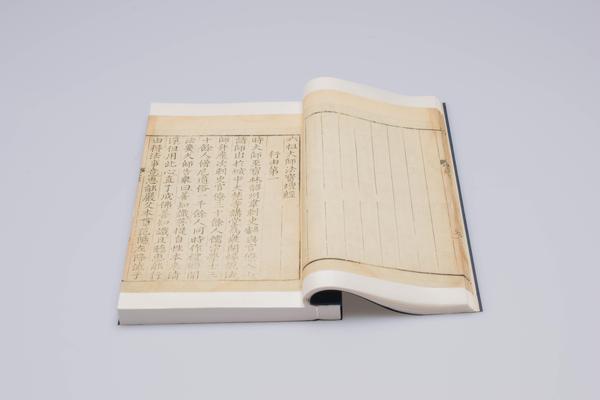 六祖大師法寶壇經
行由第一
時大師至寶林韶州韋刺史與官僚入山
請師出於城中大梵寺講堂為衆開緣說法
師升座次刺史官僚三十餘人儒宗學士三
十餘人僧尼道俗一千餘人同時作禮願聞
法要大師告衆曰善知識菩提自性本來清
淨但用此心直了成佛善知識且聽惠能行
由得法事意惠能嚴父本貫范陽左降流于